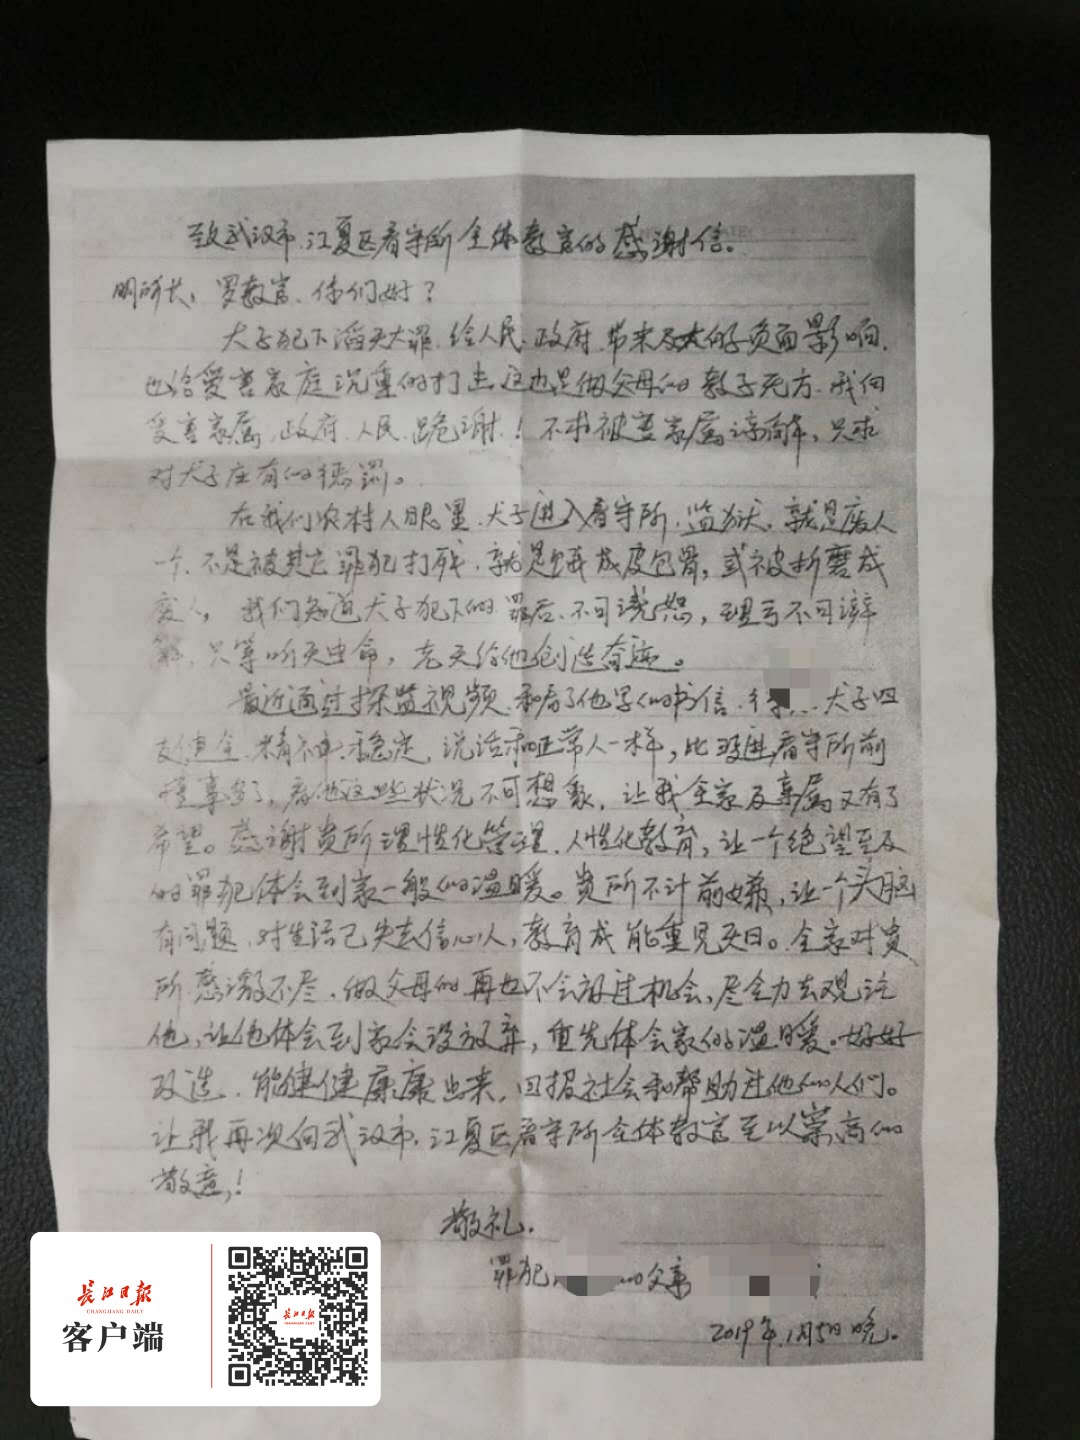 致武汉市.江夏区看守所全体教官的感谢信。
明所长,罗教官.你们好?
犬子犯下滔天大罪.给人民.政府.带来及大的负面影响.
也给受害家庭沉重的打击.这也是做父母的教子无方.我向
受害家属.政府.人民.跪谢.!不求被害家属谅解,只求
对犬子应有的惩罚。
在我们农村人眼里.犬子进入看守所.监狱.就是废人
一个.不是被其它罪犯打残.就是饿成皮包骨,或被折磨成
废人,我们知道犬子犯下的罪后.不可饶恕,理亏不可辩
解.只等听天由命,老天给他创造奇迹。
最近通过探监视频.和看了他写的书信.犬子四
肢健全.精神稳定.说话和正常人一样,比进看守所前
懂事多了,看他这些状况不可想象.让我全家及亲属又有了
希望。感谢贵所理性化管理.人性化教育,让一个绝望至及
的罪犯体会到家一般的温暖。贵所不计前嫌,让一个头脑
有问题.对生活己失去信心人,教育成能重见天日。全家对贵
所感激不尽.做父母的再也不会放过机会,尽全力去观注
他,让他体会到家会没放弃,重先体会家的温暖.好好
改造.能健健康康出来.回报社会和帮助过他的人们。
让我再次向武汉市.江夏区看守所全体教官至以崇高的
敬意,!
敬礼.
罪犯 的父亲
2019年.1月5日晚.
长江日报
CHANGJIANG DAILY
客户端
长江日报